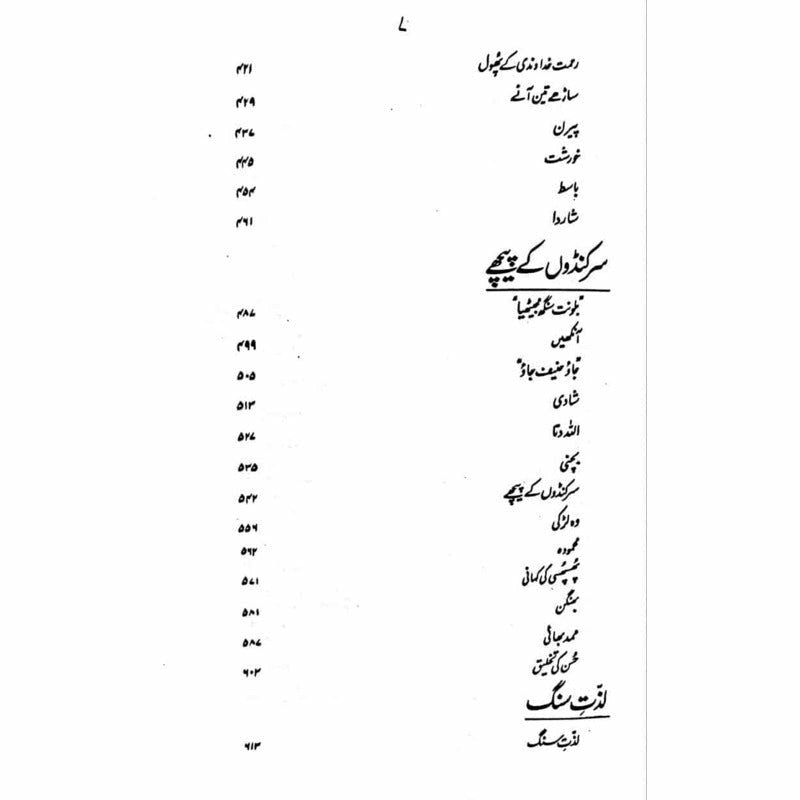 ۷
رحمت خداوندی کے پھول ۴۲۱
ساڑھے تین آنے ۴۲۹
پیرن ۴۳۷
خورشٹ ۴۴۵
باسط ۴۵۴
شاردا ۴۶۱
سرکنڈوں کے پیچھے
"بلونت سنگھ مجیٹھیا" ۴۸۷
آنکھیں ۴۹۹
"جاؤ حنیف جاؤ" ۵۰۵
شادی ۵۱۳
اللہ دتا ۵۲۷
بچنی ۵۳۵
سرکنڈوں کے پیچھے ۵۴۲
وہ لڑکی ۵۵۶
محمودہ ۵۶۲
پھسپھسی کی کہانی ۵۷۱
بھنگن ۵۸۱
ممد بھائی ۵۸۷
حُسن کی تخلیق ۶۰۳
لذّتِ سنگ
لذّتِ سنگ ۶۱۳